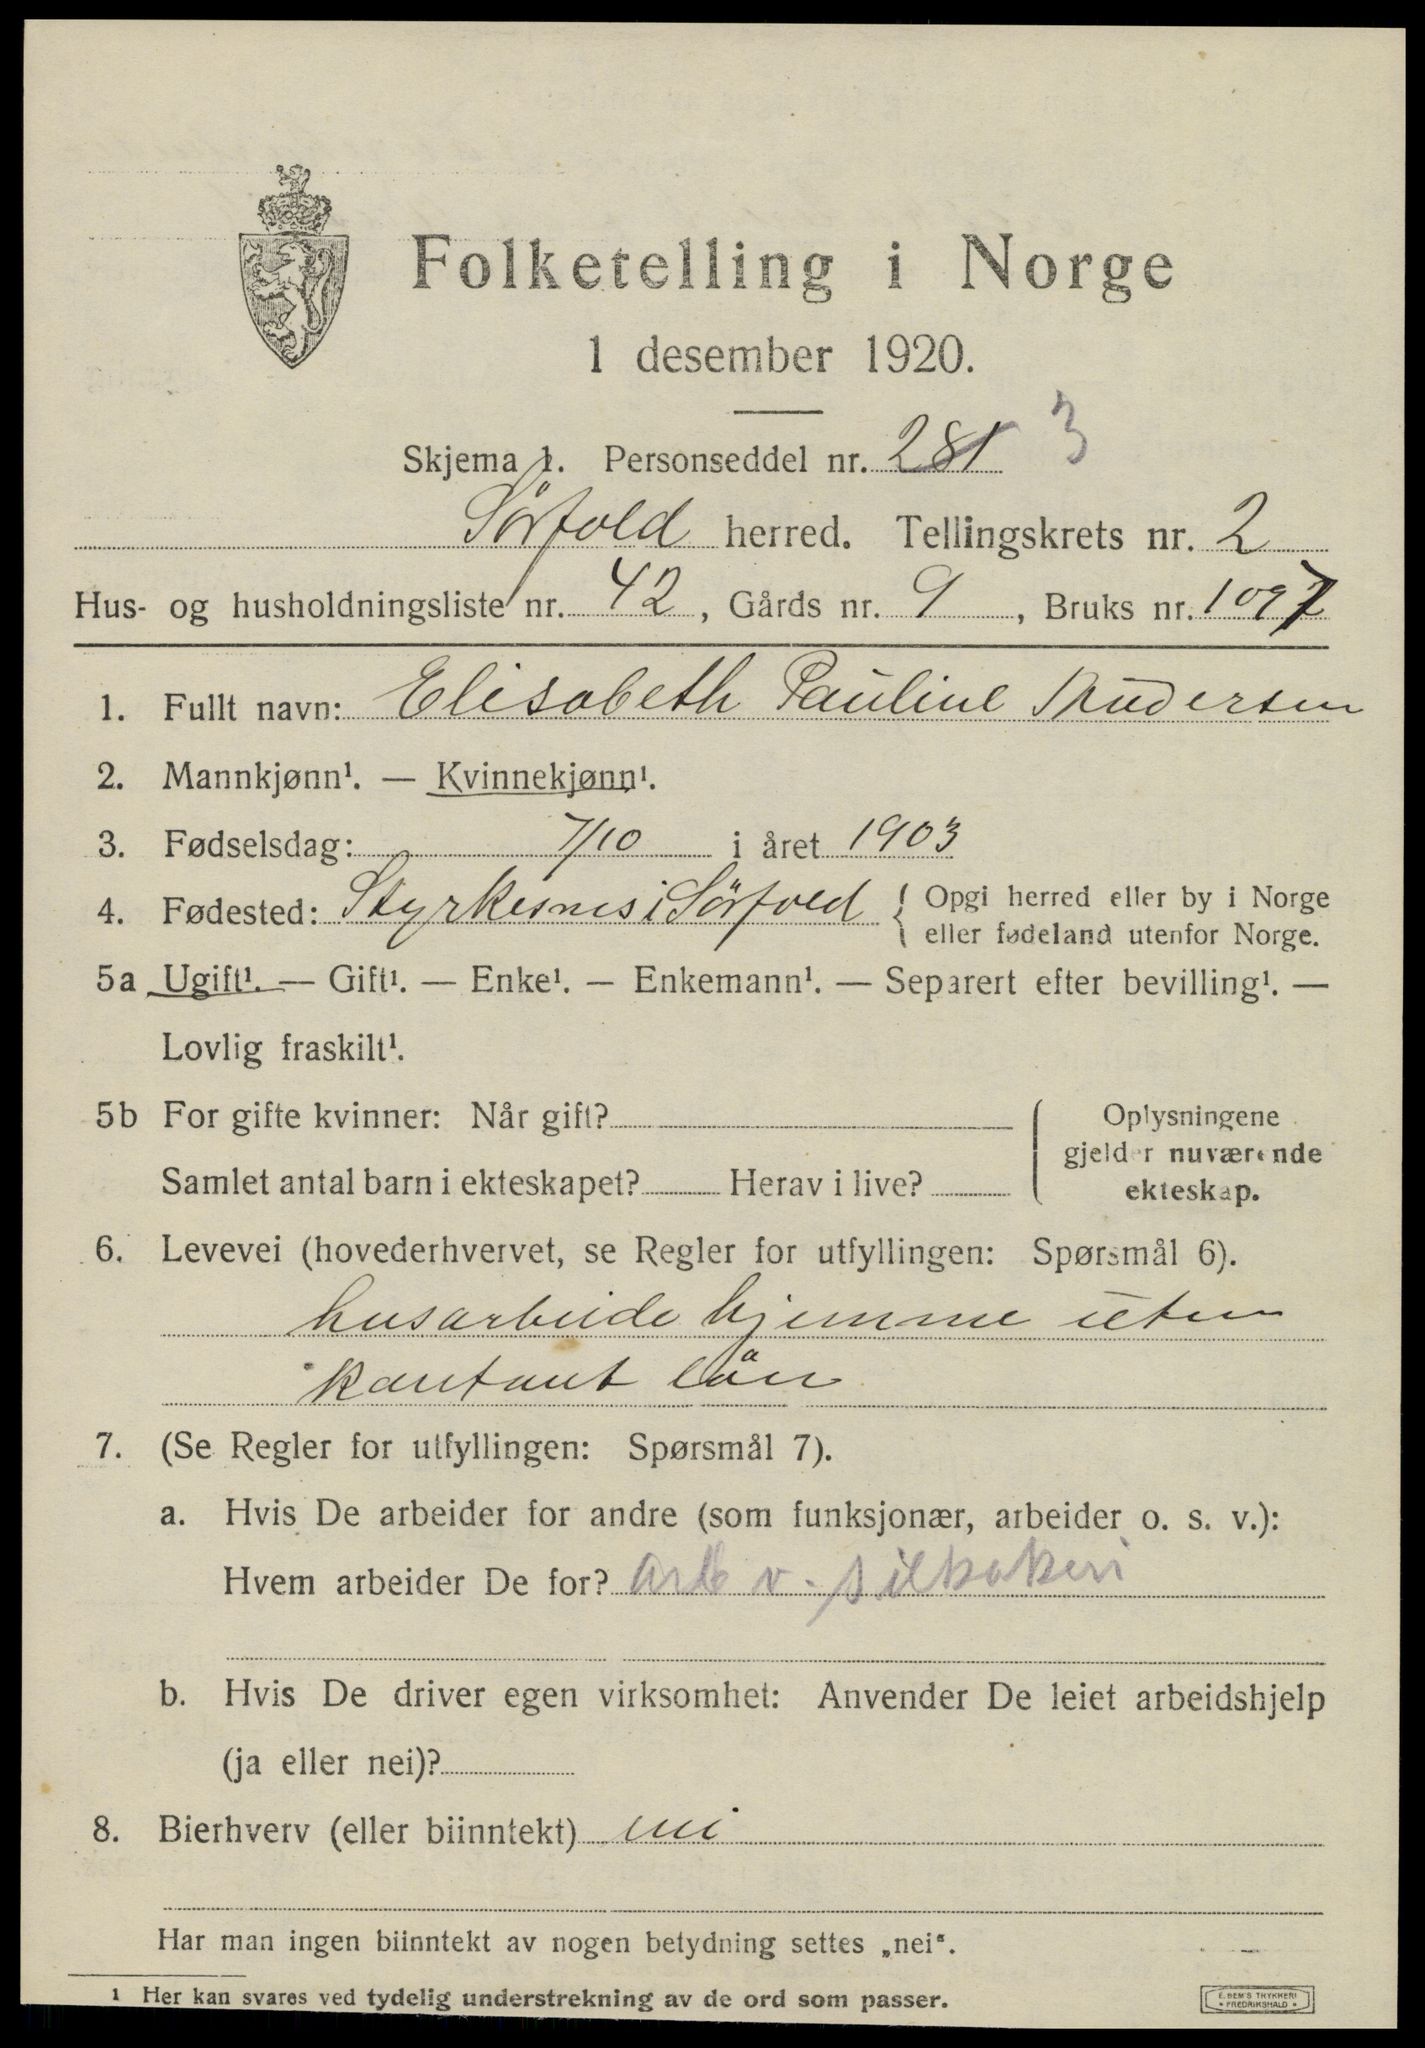 Folketelling i Norge
1 desember 1920.
Skjema 1. Personseddel nr. 281 3
Sörfold herred. Tellingskrets nr. 2
Hus- og husholdningsliste nr. 42, Gårds nr. 9, Bruks nr. 1097
1. Fullt navn: Elisabeth Pauline
2. Mannkjønn¹. — Kvinnekjønn¹.
3. Fødselsdag: 7/10 i året 1903
4. Fødested: Styrkesnes i Sörfold { Opgi herred eller by i Norge
eller fødeland utenfor Norge.
5a Ugift¹. — Gift¹. — Enke¹. — Enkemann¹. — Separert efter bevilling¹. —
Lovlig fraskilt¹.
5b For gifte kvinner: Når gift?
Samlet antal barn i ekteskapet? Herav i live?
Oplysningene
gjelder nuværende
ekteskap.
6. Levevei (hovederhvervet, se Regler for utfyllingen: Spørsmål 6).
husarbeide hjemme uten
kontant lön
7. (Se Regler for utfyllingen: Spørsmål 7).
a. Hvis De arbeider for andre (som funksjonær, arbeider o. s. v.):
Hvem arbeider De for? arb v.
b. Hvis De driver egen virksomhet: Anvender De leiet arbeidshjelp
(ja eller nei)?
8. Bierhverv (eller biinntekt) nei
Har man ingen biinntekt av nogen betydning settes „nei“.
1 Her kan svares ved tydelig understrekning av de ord som passer.
E. BEM'S TRYKKERI
• FREDRIKSHALD •